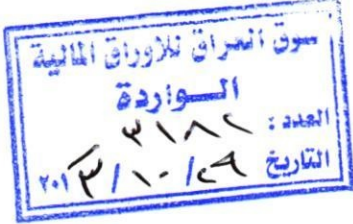 سوق العراق للاوراق المالية
الـــواردة
العدد : ٣١٨٢
التاريخ ٢٩/١٠/٢٠١٣